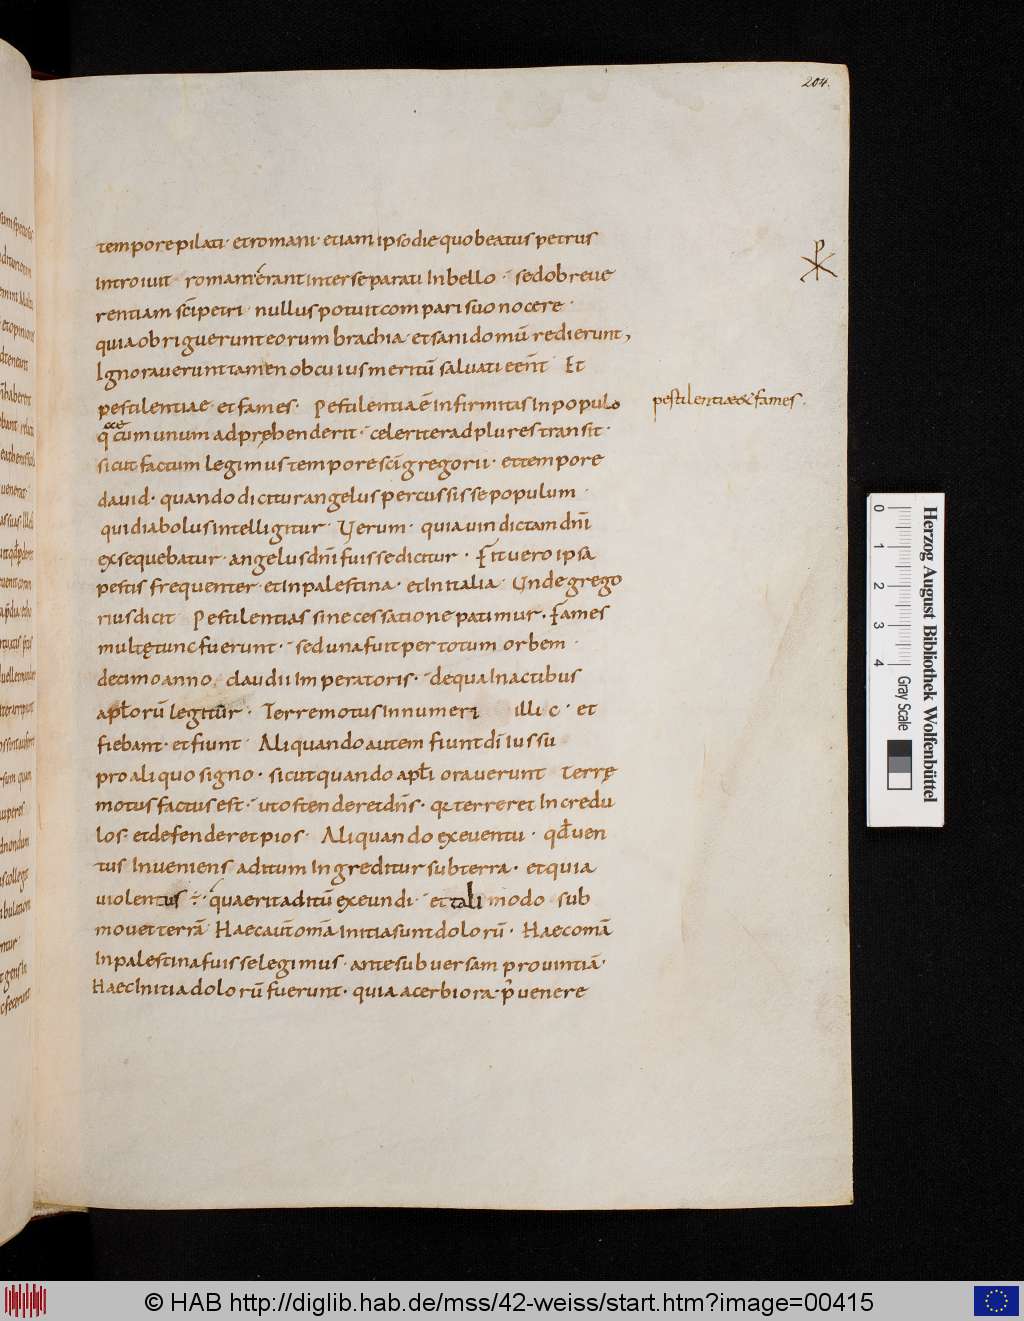 204.
tempore pilati · et romani · etiam ipso die quo beatus petrus
introiuit · romam erant inter se parati In bello · sed ob reue
rentiam sc̄i petri · nullus potuit compari suo nocere ·
quia obriguerunt eorum brachia · et sani domū redierunt,
Ignorauerunt tamen ob cuius meritū saluati eēnt Et
pestilentiae et fames · Pestilentia ē infirmitas In populo
pestilentiae & fames ·
cū unum adprehenderit · celeriter ad plures transit ·
sicut factum legimus tempore sc̄i gregorii · et tempore
dauid · quando dicitur angelus percussisse populum ·
qui diabolus intelligitur · Verum · quia uindictam dn̄i
exsequebatur · angelus dn̄i fuisse dicitur · Fit uero ipsa
pestis frequenter · et In palestina · et In italia · Unde grego
rius dicit Pestilentias sine cessatione patimur · Fames
multę tunc fuerunt · sed una fuit per totum orbem ·
decimo anno claudii Imperatoris · de qua In actibus
apl̄orū legitur · Terremotus Innumeri illic · et
fiebant · et fiunt Aliquando autem fiunt dī iussu
pro aliquo signo · sicut quando apl̄i orauerunt Terrę
motus factus est · ut ostenderet dn̄s · q terreret Incredu
los · et defenderet pios · Aliquando ex euentu · qđ uen
tus Inueniens aditum Ingreditur sub terra · et quia
uiolentus ÷ · quaerit aditū exeundi · et tali modo sub
mouet terrā Haec aūt omā initia sunt dolorū · Haec omā
In palestina fuisse legimus · ante subuersam prouintiā ·
Haec Initia dolorū fuerunt · quia acerbiora p̄uenere
Herzog August Bibliothek Wolfenbüttel
0 1 2 3 4
Gray Scale
© HAB http://diglib.hab.de/mss/42-weiss/start.htm?image=00415